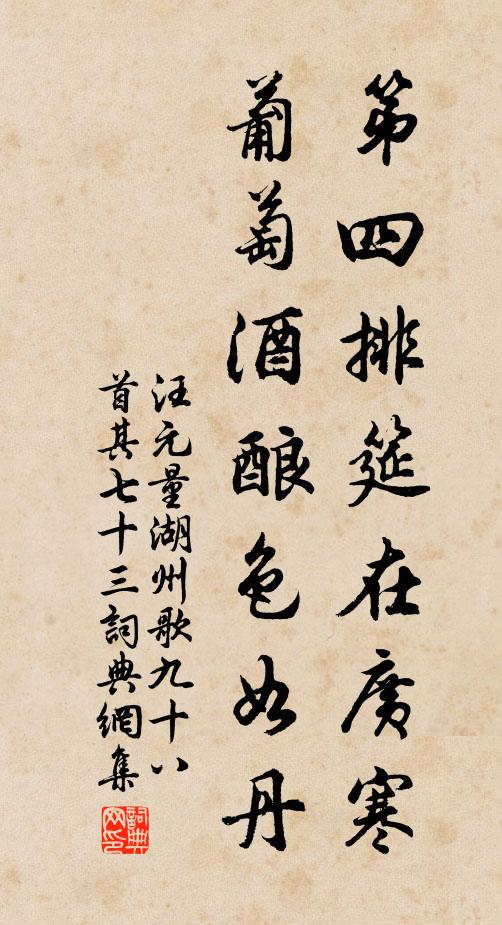 第四排筵在廣寒
葡萄酒酿色如丹
汪元量湖州歌九十八
首其七十三詞典網集
詞典
网印